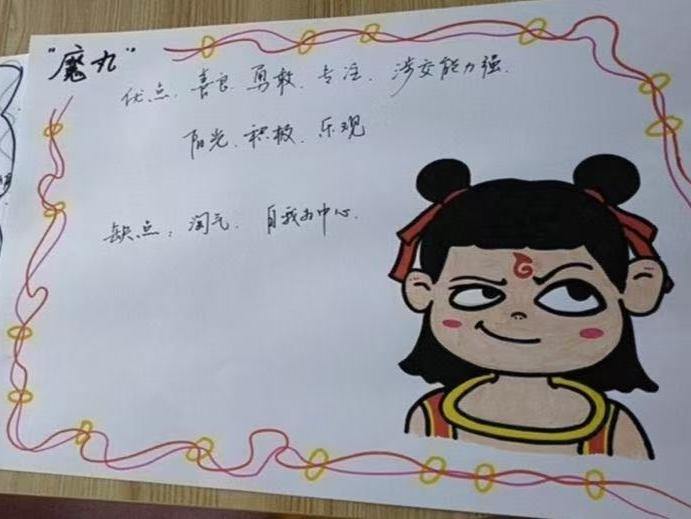 "魔丸"
优点. 善良. 勇敢. 专注. 涉交能力强.
阳光、积极、乐观
缺点：淘气. 自我为中心.